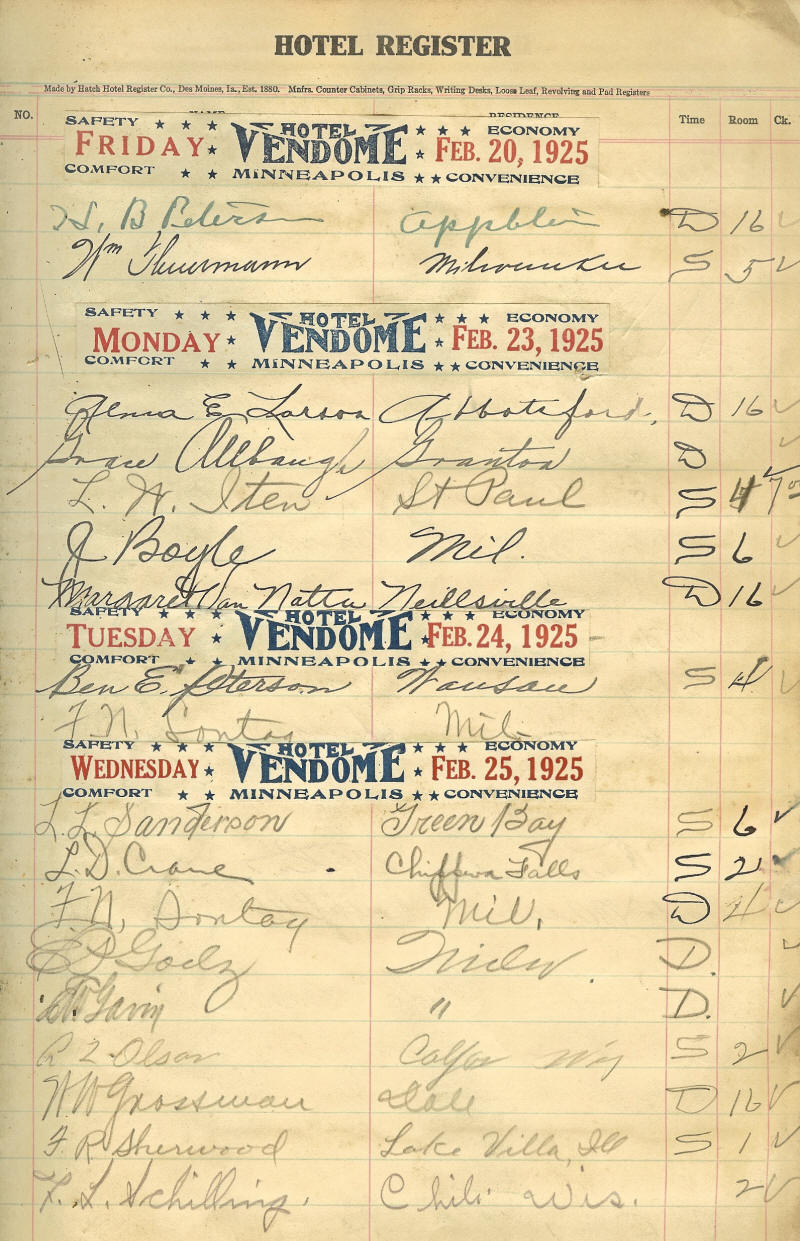 HOTEL REGISTER
Made by Hatch Hotel Register Co., Des Moines, Ia., Est. 1880. Mnfrs. Counter Cabinets, Grip Racks, Writing Desks, Loose Leaf, Revolving and Pad Registers
NO. NAME RESIDENCE Time Room Ck.
SAFETY HOTEL ECONOMY
FRIDAY VENDOME FEB. 20, 1925
COMFORT MINNEAPOLIS CONVENIENCE
B Peterson D 16
Wm Thuermann Milwaukee S 5
SAFETY HOTEL ECONOMY
MONDAY VENDOME FEB. 23, 1925
COMFORT MINNEAPOLIS CONVENIENCE
E Larson Abbotsford. D 16
Grace Allbaugh Granton D
L. W. Iten St Paul S 4 7 00
J Boyle Mil. S 6
Margaret Van Natta Neillsville D 16
SAFETY HOTEL ECONOMY
TUESDAY VENDOME FEB. 24, 1925
COMFORT MINNEAPOLIS CONVENIENCE
Ben E. Peterson Wausau S 4
F. N. Sontag Mil.
SAFETY HOTEL ECONOMY
WEDNESDAY VENDOME FEB. 25, 1925
COMFORT MINNEAPOLIS CONVENIENCE
L. L. Sanderson Green Bay S 6
L. D. Crane Chippewa Falls S 2
F. N. Sontag Mil. D 4
Milw. D.
Gavin " D.
Olson Colfax Wis S 2
W W Grossman Dale D 16
F R Sherwood Lake Villa, Ill S 1
F. L. Schilling. Chili Wis. 2